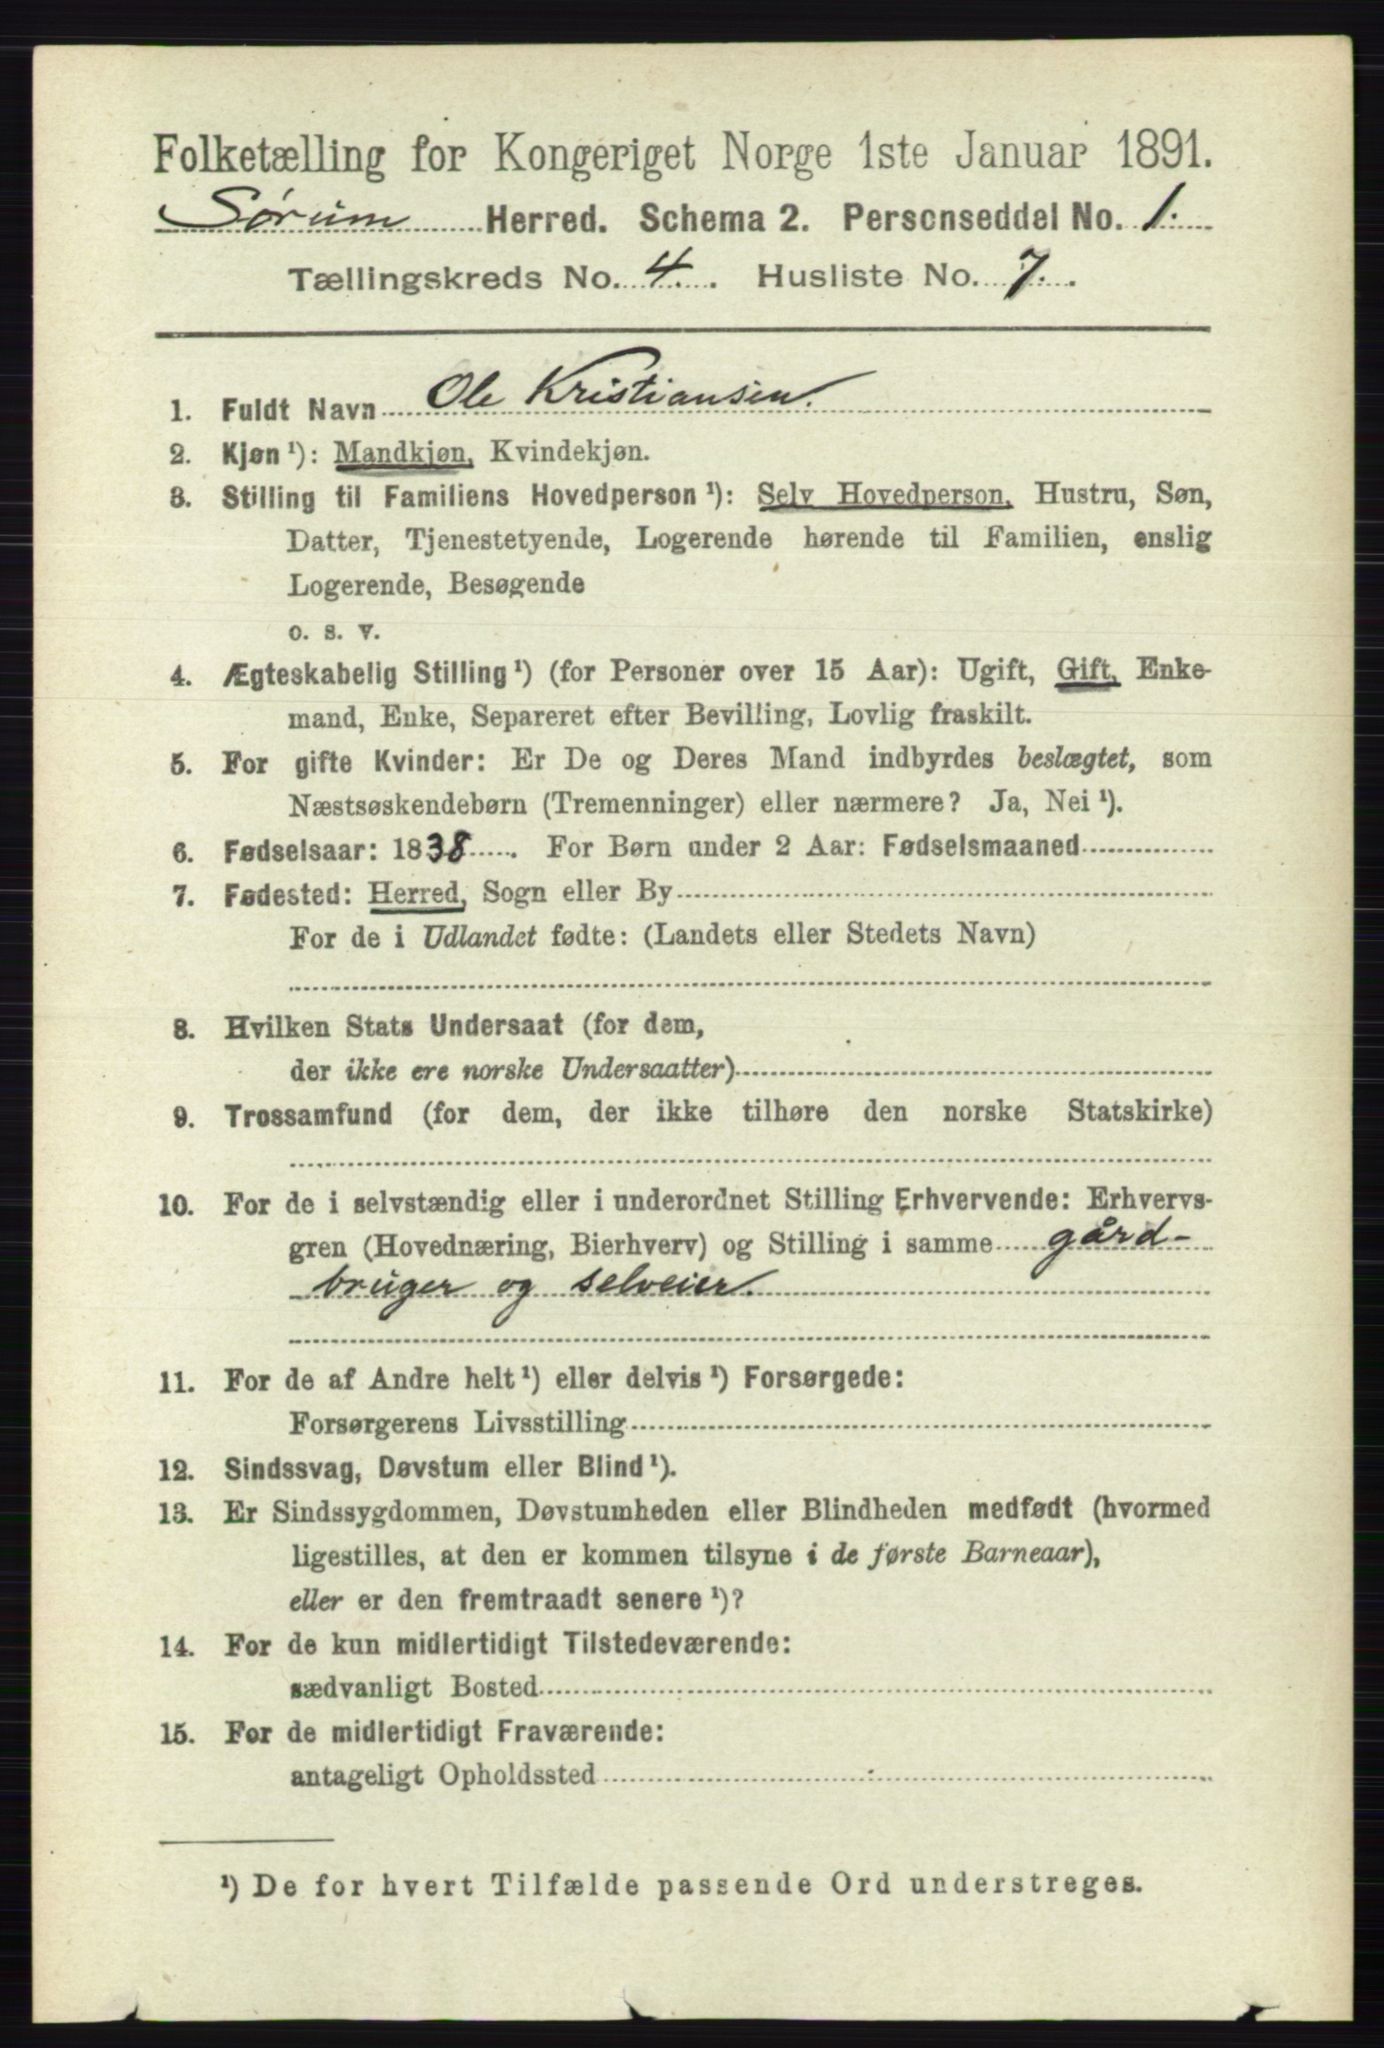 Folketælling for Kongeriget Norge 1ste Januar 1891.
Sørum Herred. Schema 2. Personseddel No. 1.
Tællingskreds No. 4. Husliste No. 7.
1. Fuldt Navn Ole Kristiansen.
2. Kjøn ¹): Mandkjøn, Kvindekjøn.
3. Stilling til Familiens Hovedperson ¹): Selv Hovedperson, Hustru, Søn,
Datter, Tjenestetyende, Logerende hørende til Familien, enslig
Logerende, Besøgende
o. s. v.
4. Ægteskabelig Stilling ¹) (for Personer over 15 Aar): Ugift, Gift, Enke-
mand, Enke, Separeret efter Bevilling, Lovlig fraskilt.
5. For gifte Kvinder: Er De og Deres Mand indbyrdes beslægtet, som
Næstsøskendebørn (Tremenninger) eller nærmere? Ja, Nei ¹).
6. Fødselsaar: 1838. For Børn under 2 Aar: Fødselsmaaned
7. Fødested: Herred, Sogn eller By
For de i Udlandet fødte: (Landets eller Stedets Navn)
8. Hvilken Stats Undersaat (for dem,
der ikke ere norske Undersaatter)
9. Trossamfund (for dem, der ikke tilhøre den norske Statskirke)
10. For de i selvstændig eller i underordnet Stilling Erhvervende: Erhvervs-
gren (Hovednæring, Bierhverv) og Stilling i samme gård-
bruger og selveier.
11. For de af Andre helt ¹) eller delvis ¹) Forsørgede:
Forsørgerens Livsstilling
12. Sindssvag, Døvstum eller Blind ¹).
13. Er Sindssygdommen, Døvstumheden eller Blindheden medfødt (hvormed
ligestilles, at den er kommen tilsyne i de første Barneaar),
eller er den fremtraadt senere ¹)?
14. For de kun midlertidigt Tilstedeværende:
sædvanligt Bosted
15. For de midlertidigt Fraværende:
antageligt Opholdssted
¹) De for hvert Tilfælde passende Ord understreges.